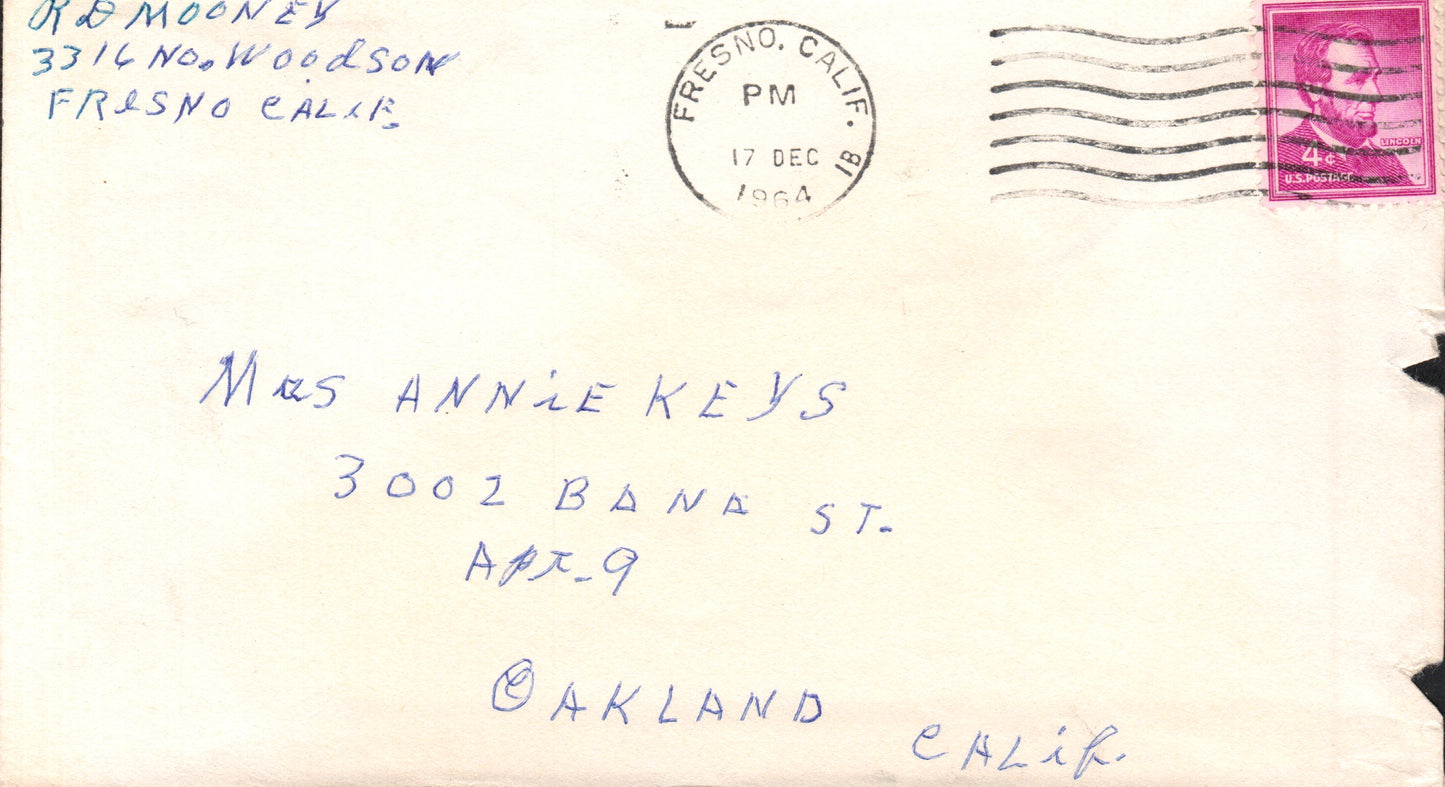 RD MOONEY
3316 NO. WOODSON
FRESNO CALIF.
FRESNO, CALIF.
PM
17 DEC
1964
1B
LINCOLN
4¢
U.S. POSTAGE
MRS ANNIE KEYS
3002 BANA ST.
APT. 9
OAKLAND
CALIF.